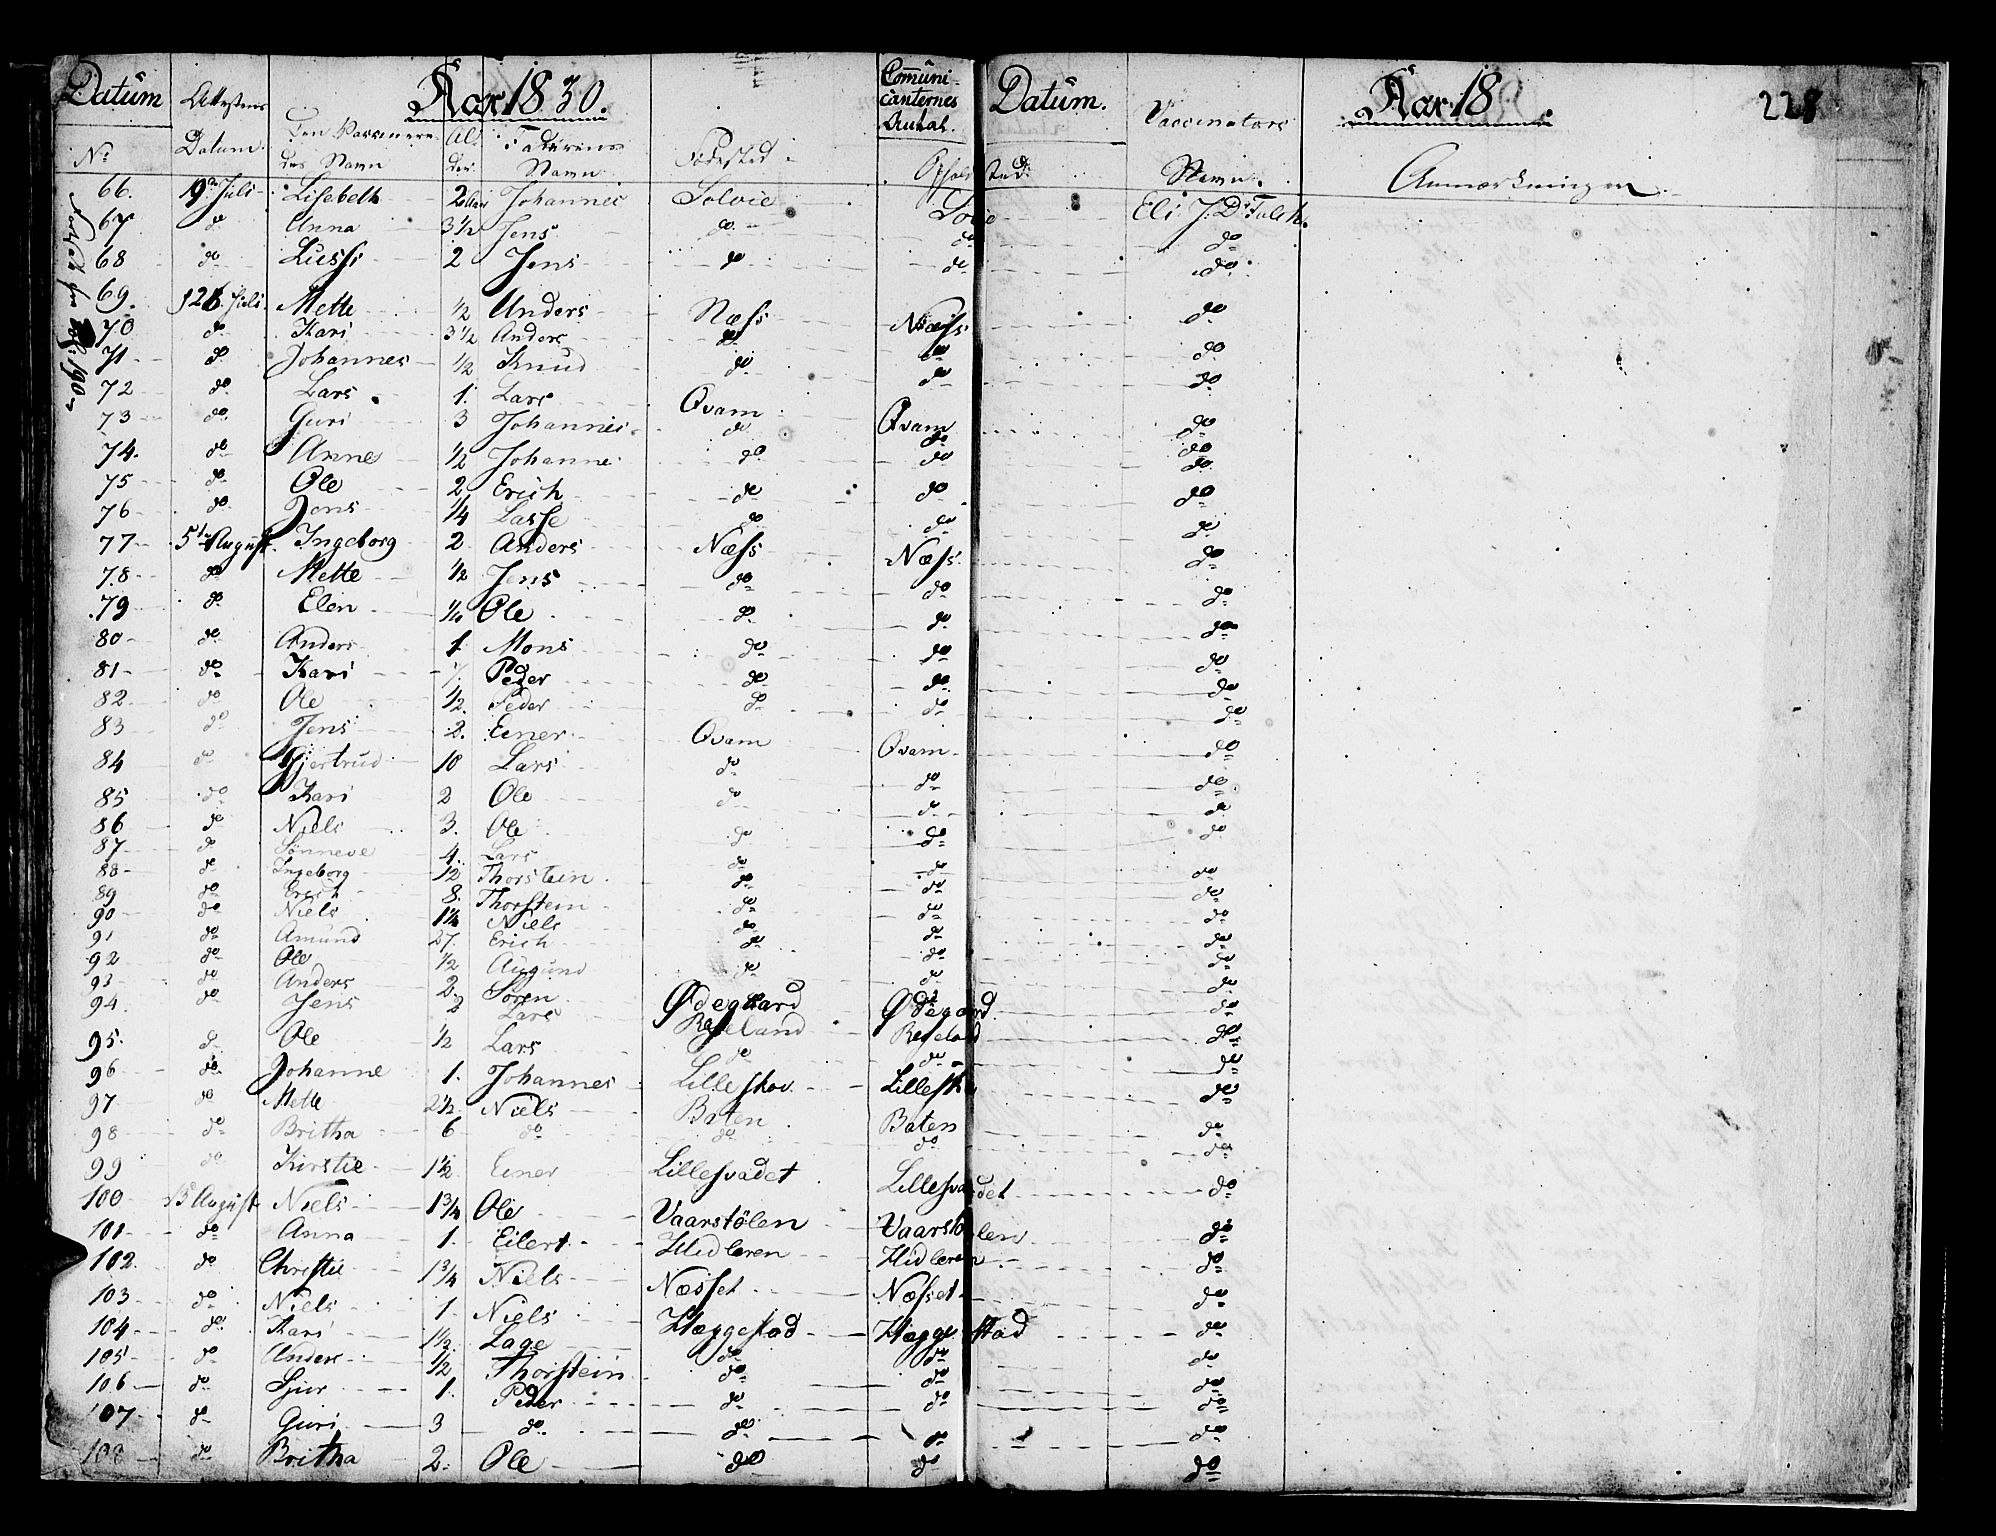 Datum Aar 1830. Comuni- canternes Antal. Datum. Aar 18 228
Attestens Datum. Den Vaccinere- des Navn Al- der Faderens Navn Fødested Opholdsted Vaccinators Navn. Anmærkninger
No
66. 19de Juli Lisebeth 2 Johannes Solvie Eli J. D. Falch.
67 do Anna 3 1/2 Jens do do do
68 do Lussi 2 Jens do do do
69. Juli Mette 1/2 Anders Næss Næss do
70 do Kari 3 1/2 Anders do do do
71 do Johannes 1/2 Knud do do do
72 do Lars 1. Lars Qvam Qvam do
73 do Guri 3 Johannes do do do
74. do Anne 1/2 Johanne do do do
75 do Ole 2 Erich do do do
76 do Jens 1/4 Lasse do do do
77 5te August Ingeborg 2 Anders Næss Næss do
78 do Mette 1/2 Jens do do do
79 do Elen 1/4 Ole do do do
80 do Anders 1 Mons do do do
81 do Kari Peder do do do
82 do Ole 1/2 Peder do do do
83 do Jens 2. Einer Qvam Qvam do
84 do Gjertrud 10 Lars do do do
85 do Kari 2 Ole do do do
86 do Niels 3. Ole do do do
87 do Sønneve 4. Lars do do do
88 do Ingeborg 12 Thorstein do do do
89 do Erich 8. Thorstein do do do
90 do Niels 1 1/4 Niels do do do
91 do Amund 27. Erich do do do
92 do Ole 1/2 Augund do do do
93 do Anders 2. Søren Ødegaard Ødegaard do
94. do Jens 2 Lars Reseland Reseland do
95. do Ole 1/2 Lars do do do
96 do Johanne 1. Johannes Lilleskov Lillesk do
97 do Mette 2 1/2 Niels Baten Baten do
98 do Britha 6 do do do do
99 do Kirstie 1 1/2 Einer Lillesvadet Lillesvadet do
100 13 August Niels 1 3/4 Ole Vaarstölen Vaarstölen do
101 do Anna 1. Eilert Hidleren Hidleren do
102. do Christie 1 3/4 Niels Næsset Næsset do
103 do Niels 1 Niels Hæggestad Hæggestad do
104 do Kari 1 1/2 Lage do do do
105 do Anders 1/2 Thorstein do do do
106 do Sjur 1. Peder do do do
107 do Guri 3 do do do do
108 do Britha 2. Ole do do do